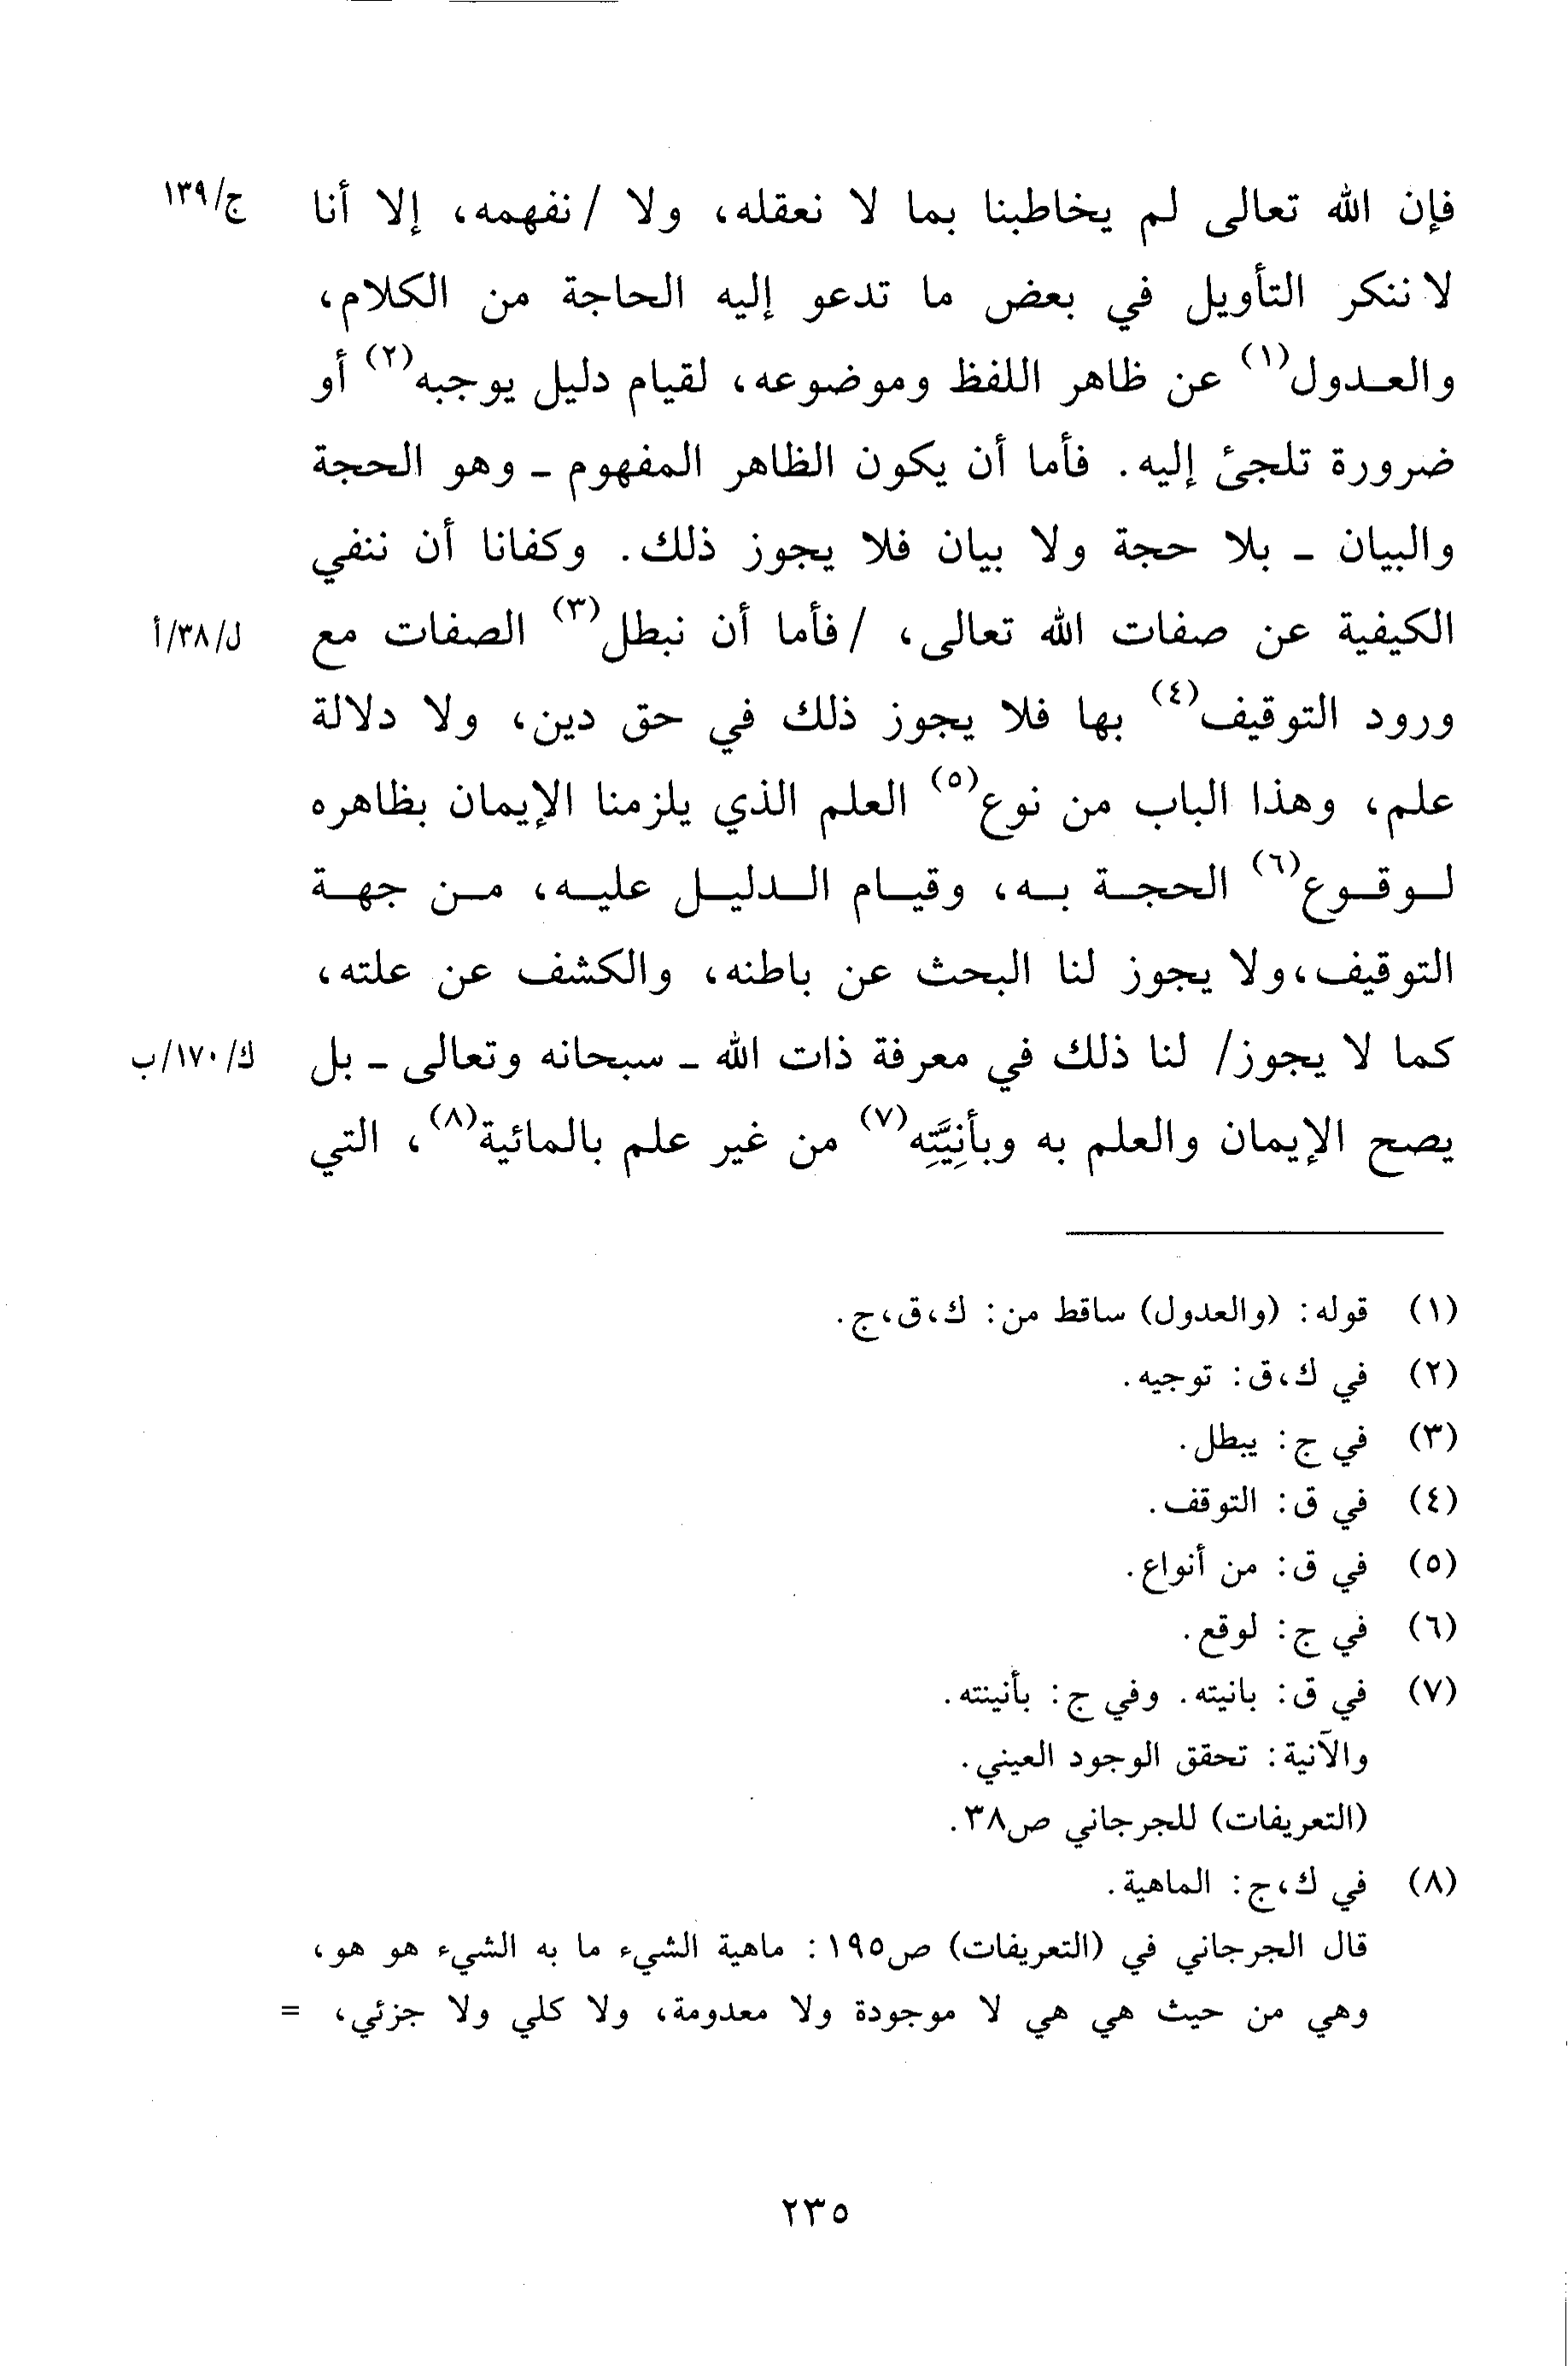 فإن الله تعالى لم يخاطبنا بما لا نعقله، ولا / نفهمه، إلا أنا ج/١٣٩
لا ننكر التأويل في بعض ما تدعو إليه الحاجة من الكلام،
والعـدول(١) عن ظاهر اللفظ وموضوعه، لقيام دليل يوجبه(٢) أو
ضرورة تلجئ إليه. فأما أن يكون الظاهر المفهوم ـ وهو الحجة
والبيان ـ بلا حجة ولا بيان فلا يجوز ذلك. وكفانا أن ننفي
الكيفية عن صفات الله تعالى، / فأما أن نبطل(٣) الصفات مع ل/٣٨/أ
ورود التوقيف(٤) بها فلا يجوز ذلك في حق دين، ولا دلالة
علم، وهذا الباب من نوع(٥) العلم الذي يلزمنا الإيمان بظاهره
لـوقـوع(٦) الحجـة بـه، وقيـام الـدليـل عليـه، مـن جهـة
التوقيف، ولا يجوز لنا البحث عن باطنه، والكشف عن علته،
كما لا يجوز/ لنا ذلك في معرفة ذات الله ـ سبحانه وتعالى ـ بل ك/١٧٠/ب
يصح الإيمان والعلم به وبأنِيَّتِه(٧) من غير علم بالمائية(٨)، التي
(١) قوله: (والعدول) ساقط من: ك،ق،ج.
(٢) في ك،ق: توجيه.
(٣) في ج: يبطل.
(٤) في ق: التوقف.
(٥) في ق: من أنواع.
(٦) في ج: لوقع.
(٧) في ق: بانيته. وفي ج: بأنينته.
والآنية: تحقق الوجود العيني.
(التعريفات) للجرجاني ص٣٨.
(٨) في ك،ج: الماهية.
قال الجرجاني في (التعريفات) ص١٩٥: ماهية الشيء ما به الشيء هو هو،
وهي من حيث هي هي لا موجودة ولا معدومة، ولا كلي ولا جزئي، =
٢٣٥